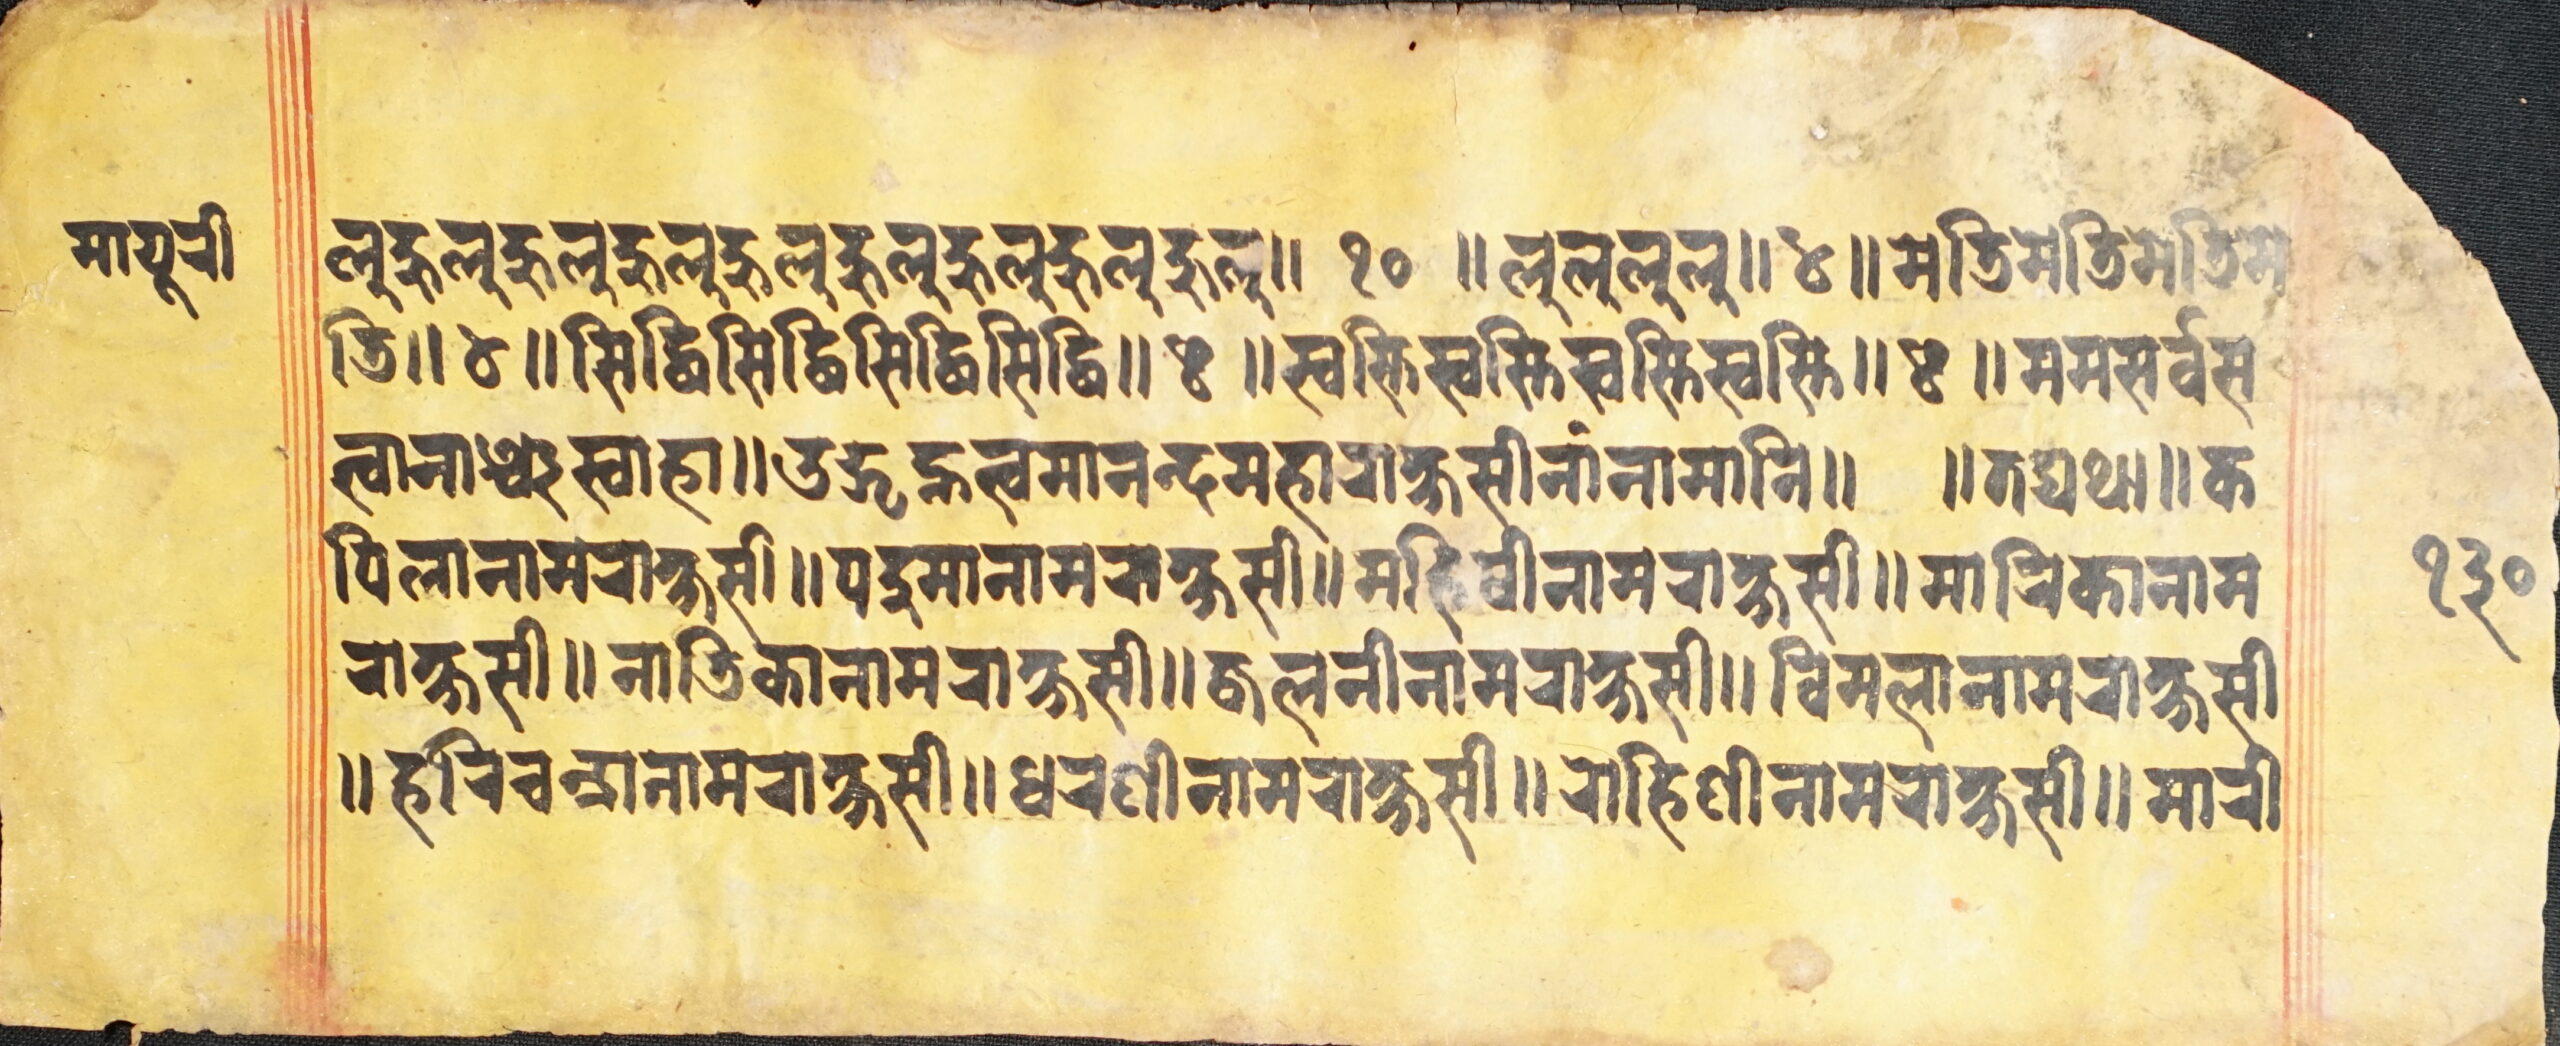 मायूरी
लुहुलुहुलुहुलुहुलुहुलुहुलुहुलुहुलु॥ १० ॥लुलुलुलु॥४॥मेतिमेतिमेतिमे
ति॥४॥सिद्धिसिद्धिसिद्धिसिद्धि॥४॥स्वस्तिस्वस्तिस्वस्तिस्वस्ति॥४॥ममसर्वस
त्वानाञ्चस्वाहा॥उद्गृह्नत्वमानन्दमहाराक्षसीनांनामानि॥ ॥तद्यथा॥क
पिलानामराक्षसी॥पदुमानामराक्षसी॥महिषीनामराक्षसी॥मोरिकानाम
राक्षसी॥नाडिकानामराक्षसी॥ज्वलनीनामराक्षसी॥विमलानामराक्षसी
॥हरिचन्द्रानामराक्षसी॥धरणीनामराक्षसी॥राहिणीनामराक्षसी॥मारी
१३०